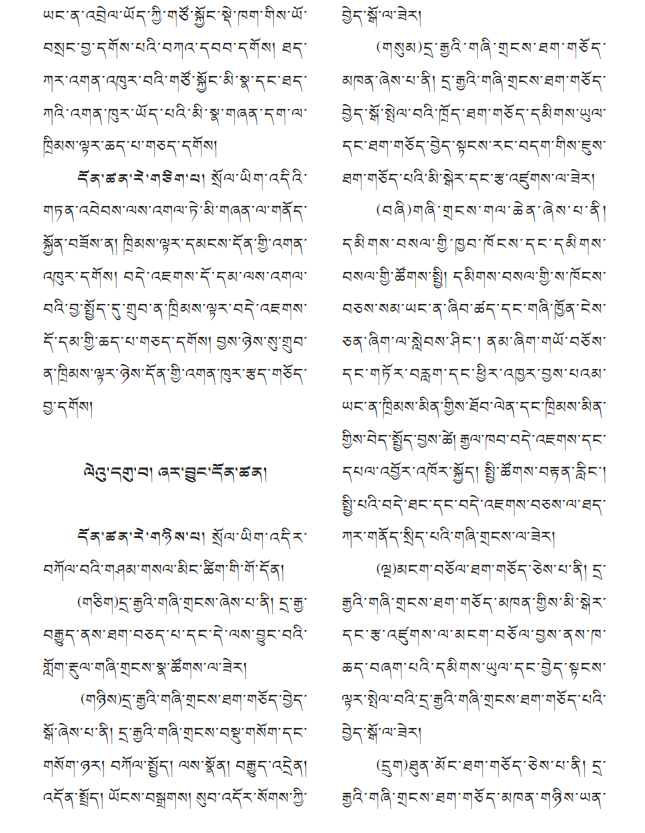 ཡང་ན་འབྲེལ་ཡོད་ཀྱི་གཙོ་སྐྱོང་སྡེ་ཁག་གིས་ཡོ་
བསྲང་བྱ་དགོས་པའི་བཀའ་དབབ་དགོས། ཐད་
ཀར་འགན་འཁུར་བའི་གཙོ་སྐྱོང་མི་སྣ་དང་ཐད་
ཀའི་འགན་ཁུར་ཡོད་པའི་མི་སྣ་གཞན་དག་ལ་
ཁྲིམས་ལྟར་ཆད་པ་གཅད་དགོས།
དོན་ཚན་ང་གཅིག་པ། སྲོལ་ཡིག་འདིའི་
གཏན་འབེབས་ལས་འགལ་ཏེ་མི་གཞན་ལ་གནོད་
སྐྱོན་བཟོས་ན། ཁྲིམས་ལྟར་དམངས་དོན་གྱི་འགན་
འཁུར་དགོས། བདེ་འཇགས་དོ་དམ་ལས་འགལ་
བའི་བྱ་སྤྱོད་དུ་གྲུབ་ན་ཁྲིམས་ལྟར་བདེ་འཇགས་
དོ་དམ་གྱི་ཆད་པ་གཅད་དགོས། བྱས་ཉེས་སུ་གྲུབ་
ན་ཁྲིམས་ལྟར་ཉེས་དོན་གྱི་འགན་ཁུར་རྩད་གཅོད་
བྱ་དགོས།
ལེའུ་དགུ་བ། ཞར་བྱུང་དོན་ཚན།
དོན་ཚན་ང་གཉིས་པ། སྲོལ་ཡིག་འདིར་
བཀོལ་བའི་གཤམ་གསལ་མིང་ཚིག་གི་གོ་དོན།
(གཅིག)དྲ་རྒྱའི་གཞི་གྲངས་ཞེས་པ་ནི། དྲ་རྒྱ་
བརྒྱུད་ནས་ཐག་བཅད་པ་དང་དེ་ལས་བྱུང་བའི་
གློག་རྡུལ་གཞི་གྲངས་སྣ་ཚོགས་ལ་ཟེར།
(གཉིས)དྲ་རྒྱའི་གཞི་གྲངས་ཐག་གཅོད་བྱེད་
སྒོ་ཞེས་པ་ནི། དྲ་རྒྱའི་གཞི་གྲངས་བསྡུ་གསོག་དང་
གསོག་ཉར། བཀོལ་སྤྱོད། ལས་སྣོན། བརྒྱུད་འདྲེན།
འདོན་སྤྲོད། ཡོངས་བསྒྲགས། སུབ་འདོར་སོགས་ཀྱི་
བྱེད་སྒོ་ལ་ཟེར།
(གསུམ)དྲ་རྒྱའི་གཞི་གྲངས་ཐག་གཅོད་
མཁན་ཞེས་པ་ནི། དྲ་རྒྱའི་གཞི་གྲངས་ཐག་གཅོད་
བྱེད་སྒོ་སྤེལ་བའི་ཁྲོད་ཐག་གཅོད་དམིགས་ཡུལ་
དང་ཐག་གཅོད་བྱེད་སྟངས་རང་བདག་གིས་ངུས་
ཐག་གཅོད་པའི་མི་སྒེར་དང་རྩ་འཛུགས་ལ་ཟེར།
(བཞི)གཞི་གྲངས་གལ་ཆེན་ཞེས་པ་ནི།
དམིགས་བསལ་གྱི་ཁྱབ་ཁོངས་དང་དམིགས་
བསལ་གྱི་ཚོགས་སྤྱི། དམིགས་བསལ་གྱི་ས་ཁོངས་
བཅས་སམ་ཡང་ན་ཞིབ་ཚད་དང་གཞི་ཁྱོན་ངེས་
ཅན་ཞིག་ལ་སླེབས་ཤིང་། ནམ་ཞིག་གཡོ་བཅོས་
དང་གཏོར་བརླག་དང་ཕྱིར་འཁྱར་བྱས་པའམ་
ཡང་ན་ཁྲིམས་མིན་གྱིས་ཐོབ་ལེན་དང་ཁྲིམས་མིན་
གྱིས་བེད་སྤྱོད་བྱས་ཚེ། རྒྱལ་ཁབ་བདེ་འཇགས་དང་
དཔལ་འབྱོར་འཁོར་སྐྱོད། སྤྱི་ཚོགས་བརྟན་རླིང་།
སྤྱི་པའི་བདེ་ཐང་དང་བདེ་འཇགས་བཅས་ལ་ཐད་
ཀར་གནོད་སྲིད་པའི་གཞི་གྲངས་ལ་ཟེར།
(ལྔ)མངག་བཅོལ་ཐག་གཅོད་ཅེས་པ་ནི། དྲ་
རྒྱའི་གཞི་གྲངས་ཐག་གཅོད་མཁན་གྱིས་མི་སྒེར་
དང་རྩ་འཛུགས་ལ་མངག་བཅོལ་བྱས་ནས་ཁ་
ཆད་བཞག་པའི་དམིགས་ཡུལ་དང་བྱེད་སྟངས་
ལྟར་སྤེལ་བའི་དྲ་རྒྱའི་གཞི་གྲངས་ཐག་གཅོད་པའི་
བྱེད་སྒོ་ལ་ཟེར།
(དྲུག)ཐུན་མོང་ཐག་གཅོད་ཅེས་པ་ནི། དྲ་
རྒྱའི་གཞི་གྲངས་ཐག་གཅོད་མཁན་གཉིས་ཡན་